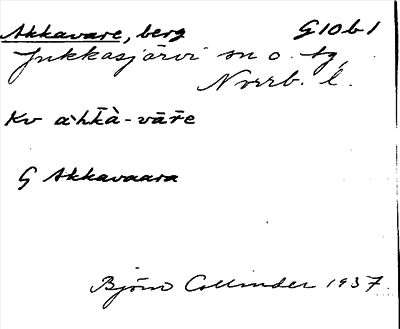 Akkavare, berg G10b1
Jukkasjärvi sn o. tg,
Norrb. l.
Kv a·hk̄à-vāře
G Akkavaara
Björn Collinder 1937.